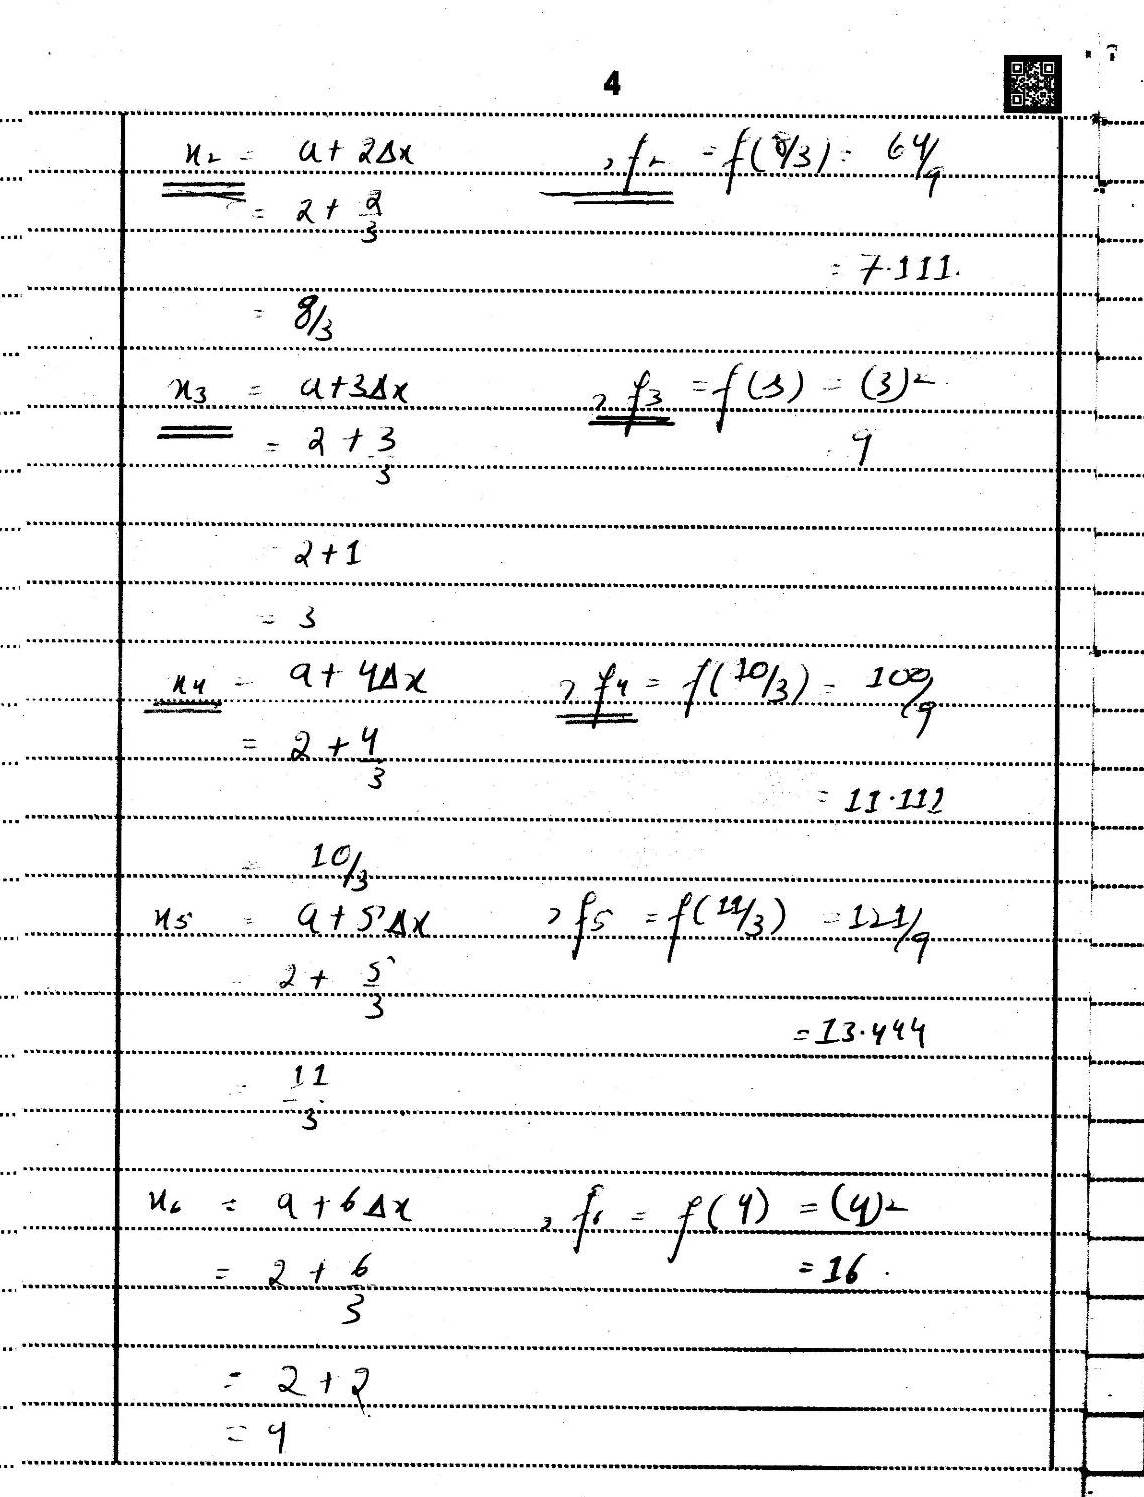 4
x2 = a + 2Δx , f2 = f(8/3) = 64/9
= 2 + 2/3
= 7.111.
= 8/3
x3 = a+3Δx , f3 = f(3) = (3)2
= 2 + 3/3 9
2+1
= 3
x4 = a + 4Δx , f4 = f(10/3) = 100/9
= 2 + 4/3
= 11.112
= 10/3
x5 = a + 5Δx , f5 = f(11/3) = 121/9
2 + 5/3
= 13.444
= 11/3
x6 = a + 6Δx , f6 = f(4) = (4)2
= 2 + 6/3 = 16.
= 2 + 2
= 4